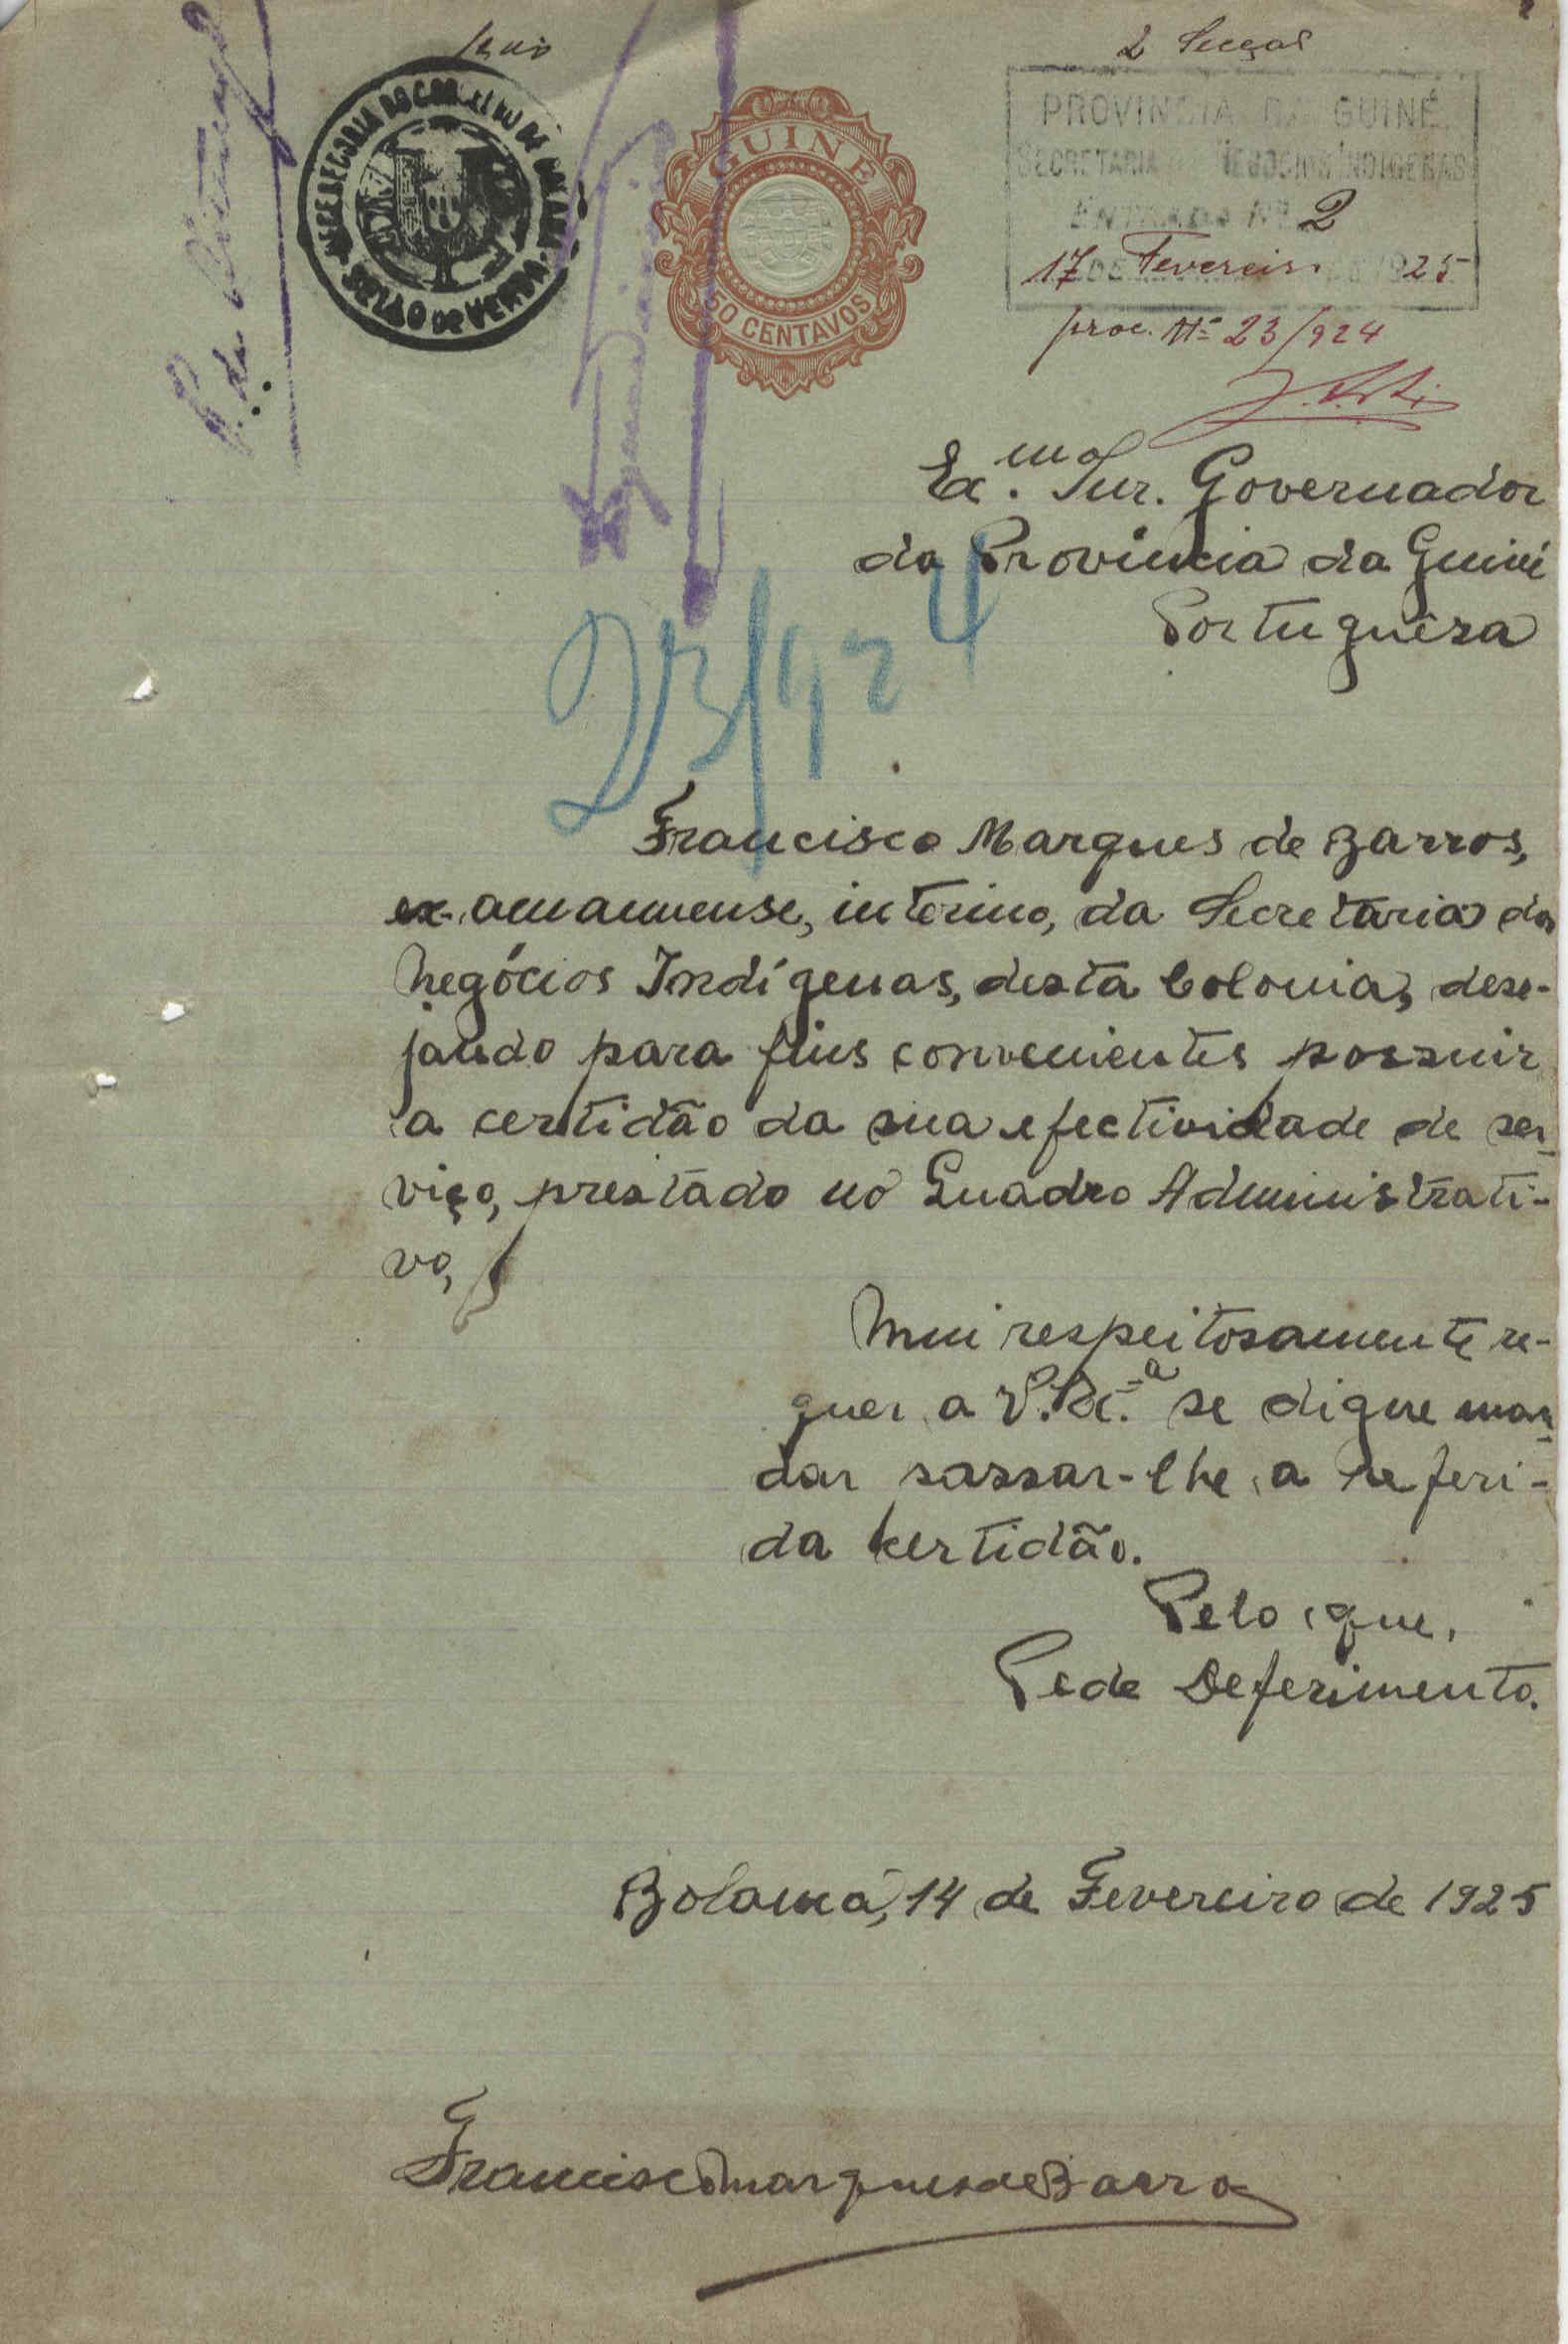 2 Secção
PROVINCIA DA GUINÉ
SECRETARIA NEGOCIOS INDIGENAS
ENTRADA Nº 2
17 DE Fevereiro DE 1925
proc. Nº 23/924
GUINÉ
50 CENTAVOS
SELLO DE VERBA
Ex.mo Snr. Governador
da Provincia da Guiné
Portuguêsa
23/924
Francisco Marques de Barros,
ex-amanuense, interino, da Secretaria dos
Negócios Indígenas, desta Colonia, dese-
jando para fins convenientes possuir
a certidão da sua efectividade de ser-
viço, prestado no Quadro Administrati-
vo,
Mui respeitosamente re-
quer a V. Ex.ª se digne man-
dar passar-lhe a referi-
da certidão.
Pelo que,
Pede Deferimento.
Bolama, 14 de Fevereiro de 1925
Francisco Marques de Barros